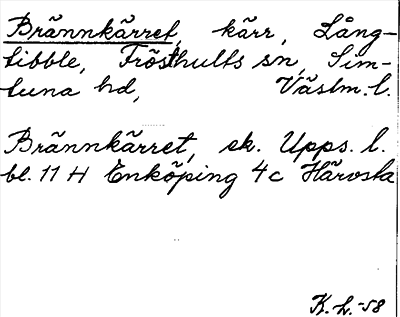 Brännkärret, kärr, Lång-
tibble, Frösthults sn, Sim-
tuna hd, Västm. l.
Brännkärret, ek. Upps. l.
bl. 11 H Enköping 4c Härvsta
K.h.-58